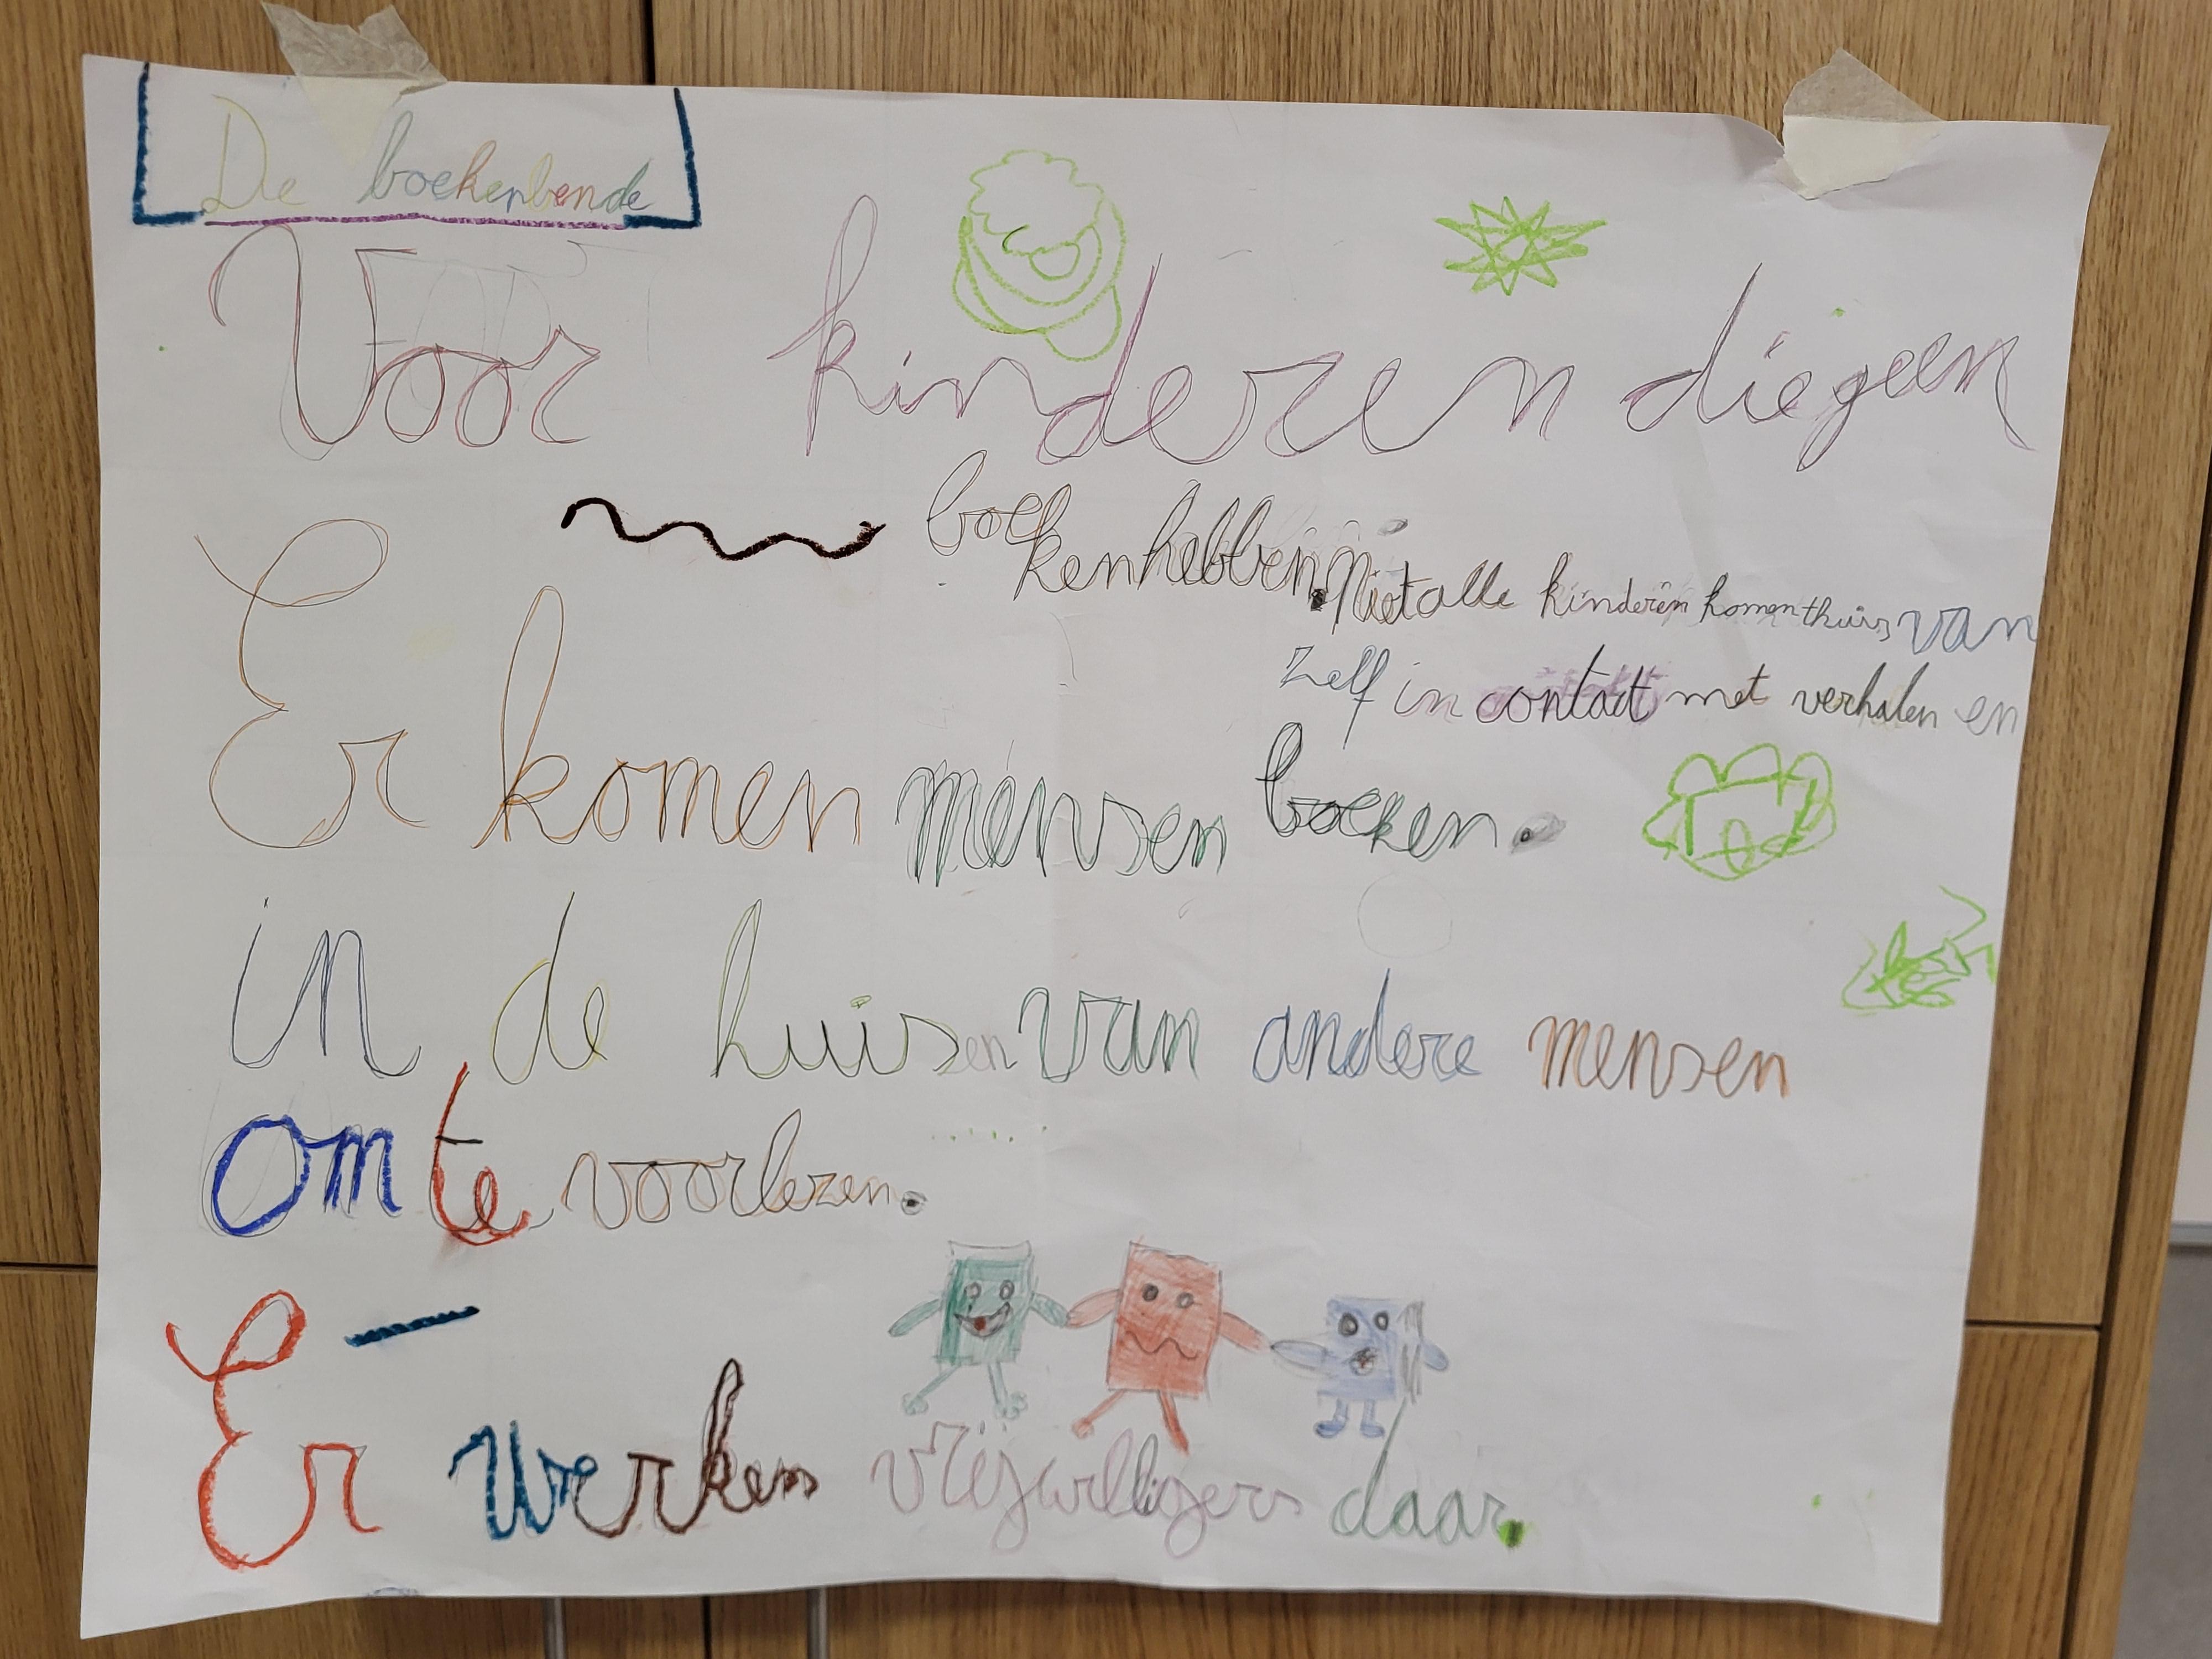 De boekenbende
Voor kinderen die geen
boekenhebben. Niet alle kinderen komen thuis van
zelf in contact met verhalen en
boeken.
Er komen mensen
in de huisen van andere mensen
om te voorlezen.
Er werken vrijwilligers daar.